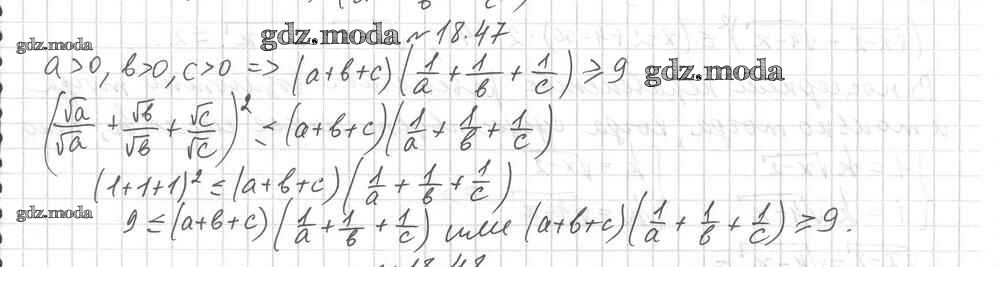 gdz.moda № 18.47
gdz.moda
a>0, b>0, c>0 => (a+b+c)(1/a + 1/b + 1/c) ≥ 9 gdz.moda
(√a/√a + √b/√b + √c/√c)² ≤ (a+b+c)(1/a + 1/b + 1/c)
(1+1+1)² ≤ (a+b+c)(1/a + 1/b + 1/c)
gdz.moda
9 ≤ (a+b+c)(1/a + 1/b + 1/c) или (a+b+c)(1/a + 1/b + 1/c) ≥ 9.